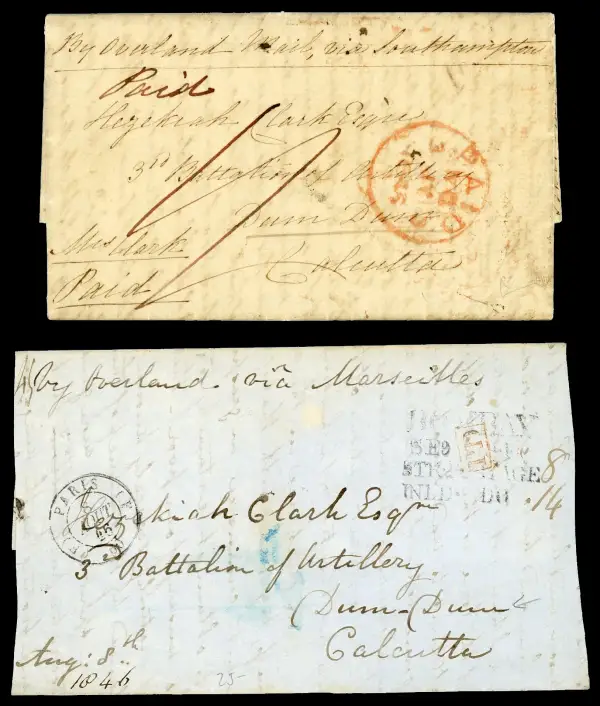 By Overland Mail, via Southampton
Paid
Hezekiah Clark Esqre
3rd Battalion of Artillery
Dum Dum
Calcutta
Mrs Clark
Paid
PAID
By Overland viâ Marseilles
PARIS
AOUT
46
BOMBAY
STEAM POSTAGE
INLD DO
8
14
kiah Clark Esqre
3 Battalion of Artillery
Dum-Dum
Calcutta
Aug: 8th
1846
25-